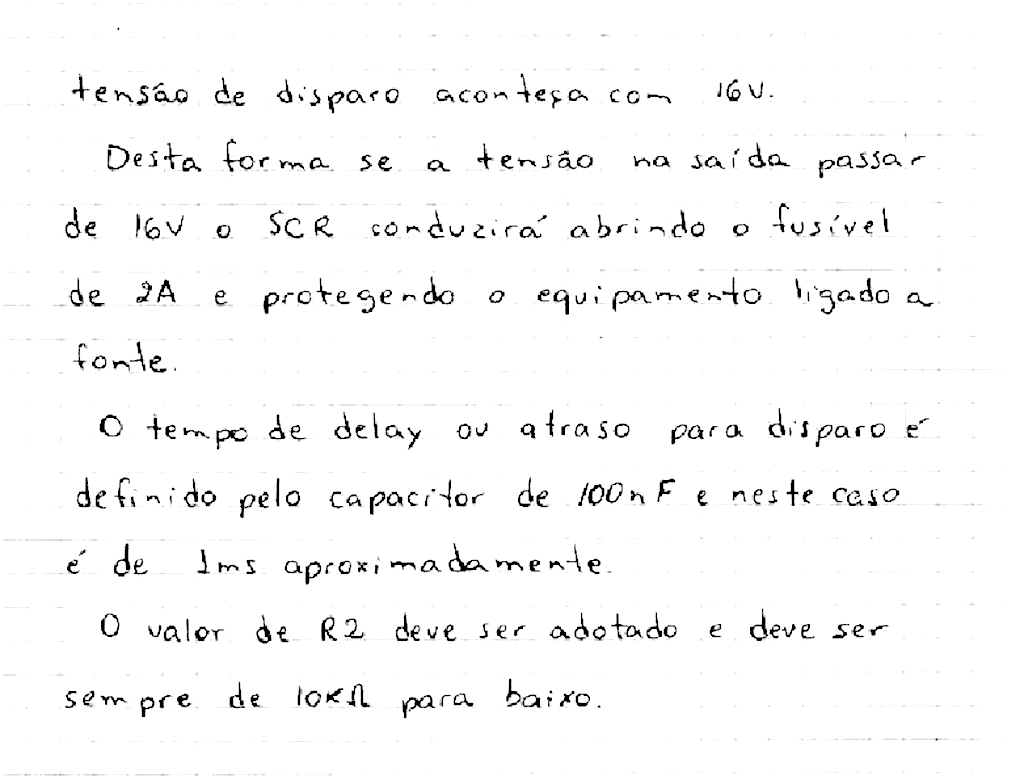 tensão de disparo aconteça com 16V.
Desta forma se a tensão na saída passar
de 16V o SCR conduzirá abrindo o fusível
de 2A e protegendo o equipamento ligado a
fonte.
O tempo de delay ou atraso para disparo é
definido pelo capacitor de 100nF e neste caso
é de 1ms aproximadamente.
O valor de R2 deve ser adotado e deve ser
sempre de 10KΩ para baixo.